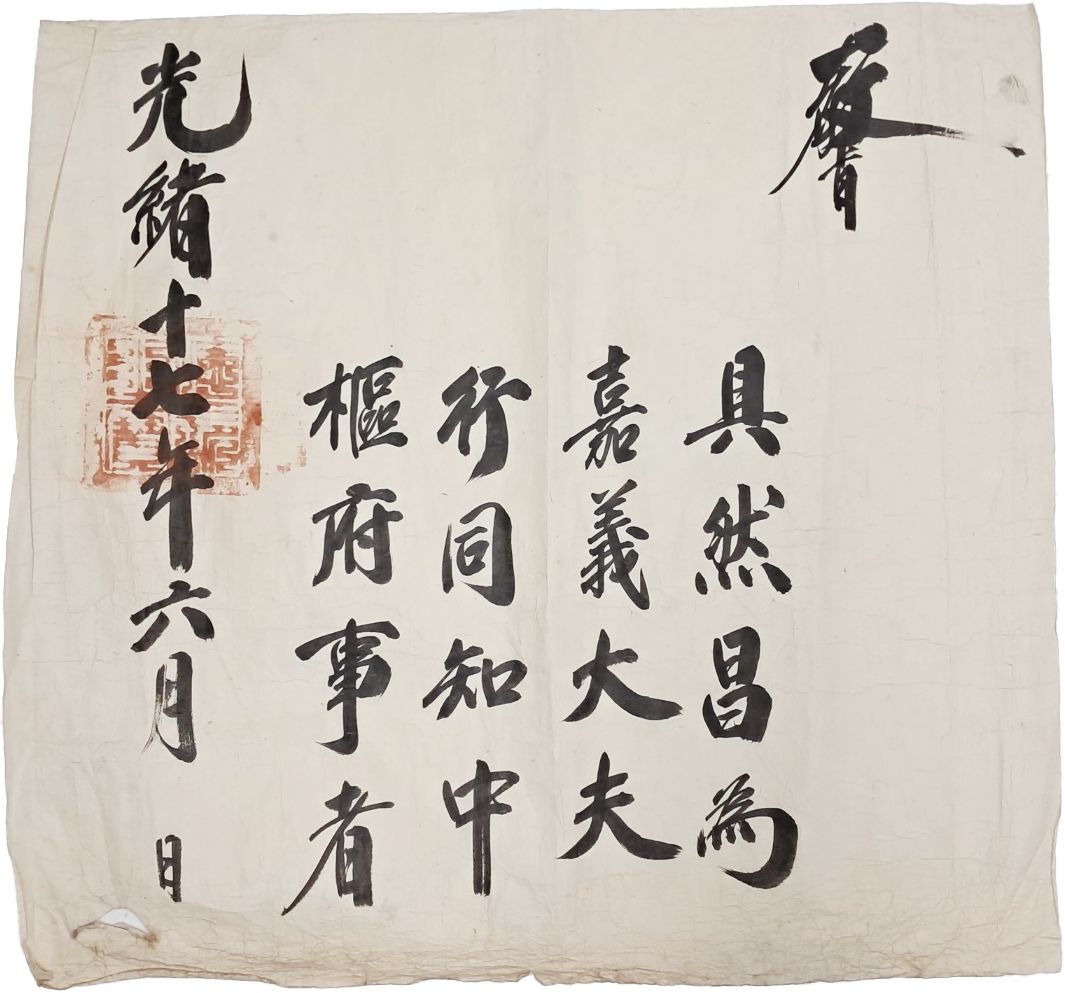 敎旨
具然昌為
嘉義大夫
行同知中
樞府事者
光緒十七年六月　日